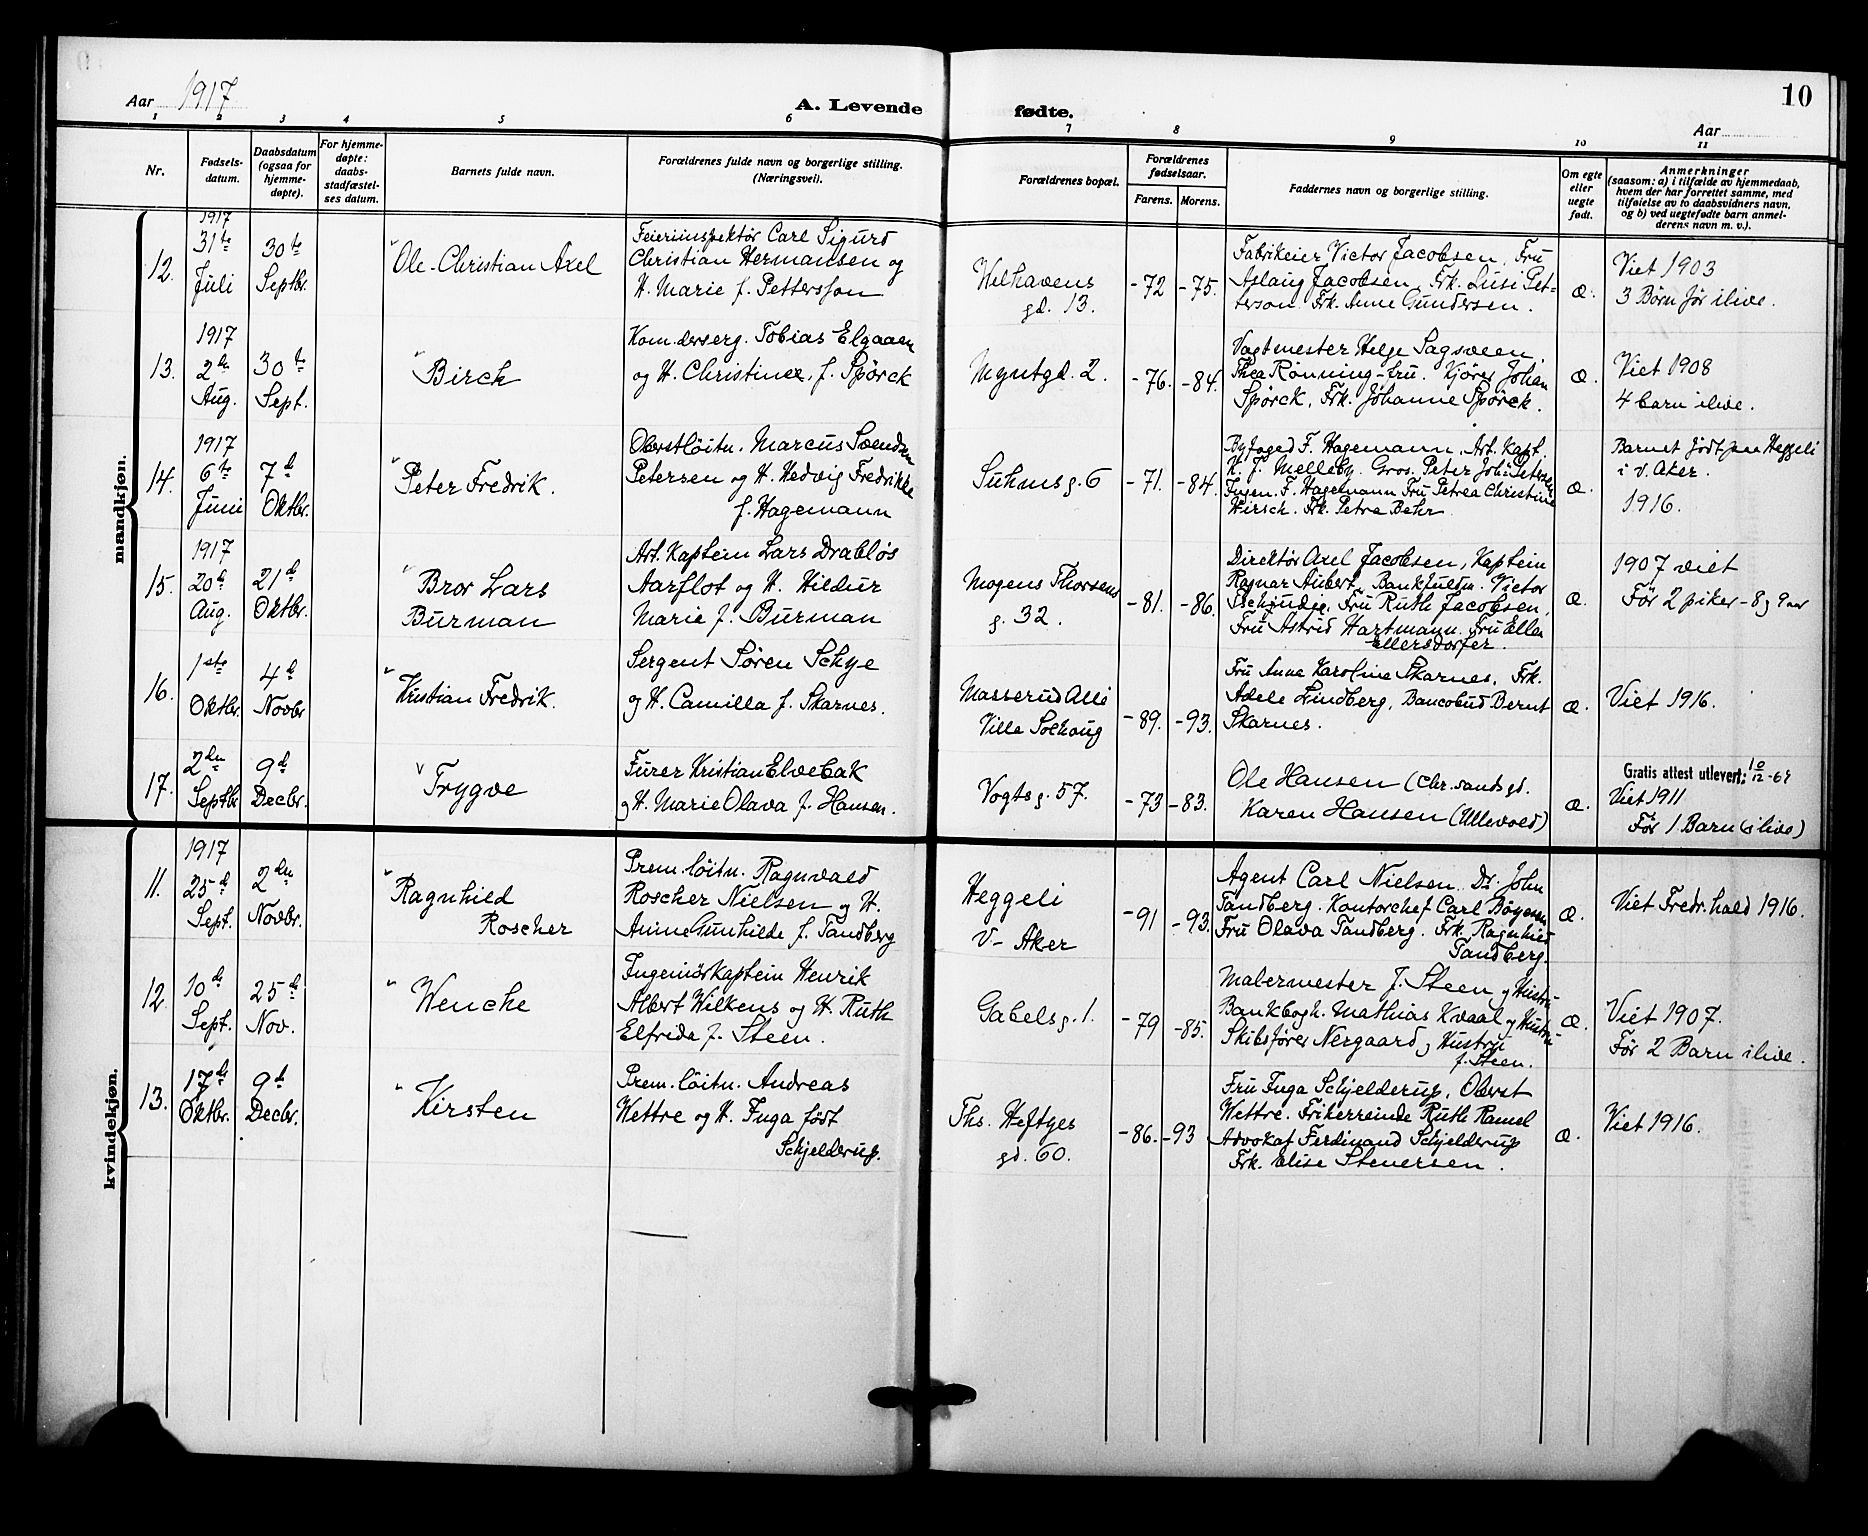 10
Aar 1917
A. Levende fødte.
Aar
1 2 3 4 5 6 7 8 9 10 11
Nr.
Fødsels-
datum.
Daabsdatum
(ogsaa for
hjemme-
døpte).
For hjemme-
døpte:
daabs-
stadfæstel-
ses datum.
Barnets fulde navn.
Forældrenes fulde navn og borgerlige stilling.
(Næringsvei).
Forældrenes bopæl.
Forældrenes
fødselsaar.
Farens. Morens.
Faddernes navn og borgerlige stilling.
Om egte
eller
uegte
født.
Anmerkninger
(saasom: a) i tilfælde av hjemmedaab,
hvem der har forrettet samme, med
tilføielse av to daabsvidners navn,
og b) ved uegtefødte barn anmel-
derens navn m. v.).
mandkjøn.
12.
1917
31te
Juli
30te
Septbr.
Ole-Christian Axel
Feierinspektør Carl Sigurd
Christian Hermansen og
H. Marie f. Pettersson
Welhavens
gd. 13.
-72 -75.
Fabrikeier Victor Jacobsen, Fru
Aslaug Jacobsen, Frk. Lusi Pet-
terson Frk. Anne Gundersen.
Æ.
Viet 1903
3 Børn før ilive.
13.
1917
2den
Aug.
30te
Sept.
Birch
Kom.derserg. Tobias Elgaaen
og H. Christine, f. Spørck
Myntgd. 2.
-76. -84.
Vagtmester Helge Sagsveen,
Thea Rønning-fru. Kjører Johan
Spørck, Frk. Johanne Spørck.
Æ.
Viet 1908
4 barn ilive.
14.
1917
6te
Juni
7d
Oktbr.
Peter Fredrik.
Oberstløitn. Marcus Svendsen
Petersen og H. Hedvig Fredrikke
f. Hagemann
Suhmsg. 6
-71. -84.
Byfoged F. Hagemann, Art. Kapt.
K. J. Melleby. Gros. Peter Joh. Petersen
Ingen. F. Hagemann Fru Petrea Christine
Hirsch. Frk. Petra Behr
Æ.
Barnet født paa Heggeli
i v. Aker.
1916.
15.
1917
20d
Aug.
21d
Oktbr.
Bror Lars
Burman
Art. Kaptein Lars Drabløs
Aarflot og H. Hildur
Marie f. Burman
Mogens Thorsens
g. 32.
-81. -86.
Direktør Axel Jacobsen, Kaptein
Ragnar Aubert, Bankfuldm. Victor
Fru Ruth Jacobsen,
Fru Astrid Hartmann. Fru Ellen
Ellersdorfer.
Æ.
1907 viet
Før 2 piker - 8 og 9 aar
16.
1ste
Oktbr.
4d
Novbr
Kristian Fredrik.
Sergent Søren Schye
og H. Camilla f. Skarnes.
Masserud Allé
Villa Solhaug
-89. -93.
Fru Anna Karoline Skarnes, Frk.
Adele Lindberg, Bancobud Bernt
Skarnes.
Æ.
Viet 1916.
17.
2den
Septbr.
9d
Decbr.
Trygve
Furer Kristian Elvebak
og H. Marie Olava f. Hansen.
Vogtsg. 57.
-73 -83.
Ole Hansen (Chr.sandsgd.
Karen Hansen (Ullevold)
Æ.
Gratis attest utlevert: 10/12-64
Viet 1911
Før 1 Barn (ilive)
kvindekjøn.
11.
1917
25d
Sept.
2den
Novbr.
Ragnhild
Roscher
Prem.løitn. Ragnvald
Roscher Nielsen og H.
Anine Gunhilde f. Tandberg
Heggeli
V- Aker
-91 -93.
Agent Carl Nielsen. Dr. John
Tandberg. Kontorchef Carl Bøyesen
Fru Olava Tandberg. Frk. Ragnhild
Tandberg.
Æ.
Viet Fredr.hald 1916.
12.
10de
Sept.
25de
Nov.
Wenche
Ingeniørkaptein Henrik
Albert Wilkens og H. Ruth
Elfrida f. Steen.
Gabelsg. 1.
-79 -85.
Malermester J. Steen og Hustru
Bankbogh. Mathias Kvaal og Hustru
Skibsfører Nergaard og Hustru
f. Steen.
Æ.
Viet 1907.
Før 2 Barn ilive.
13.
17de
Oktbr.
9d
Decbr.
Kirsten
Prem.løitn. Andreas
Wettre og H. Inga født
Schjelderup.
Ths. Heftyes
gd. 60.
-86. -93
Fru Inga Schjelderup, Oberst
Wettre. Ruth Ramel
Advokat Ferdinand Schjelderup
Frk. Elise Stenersen.
Æ.
Viet 1916.